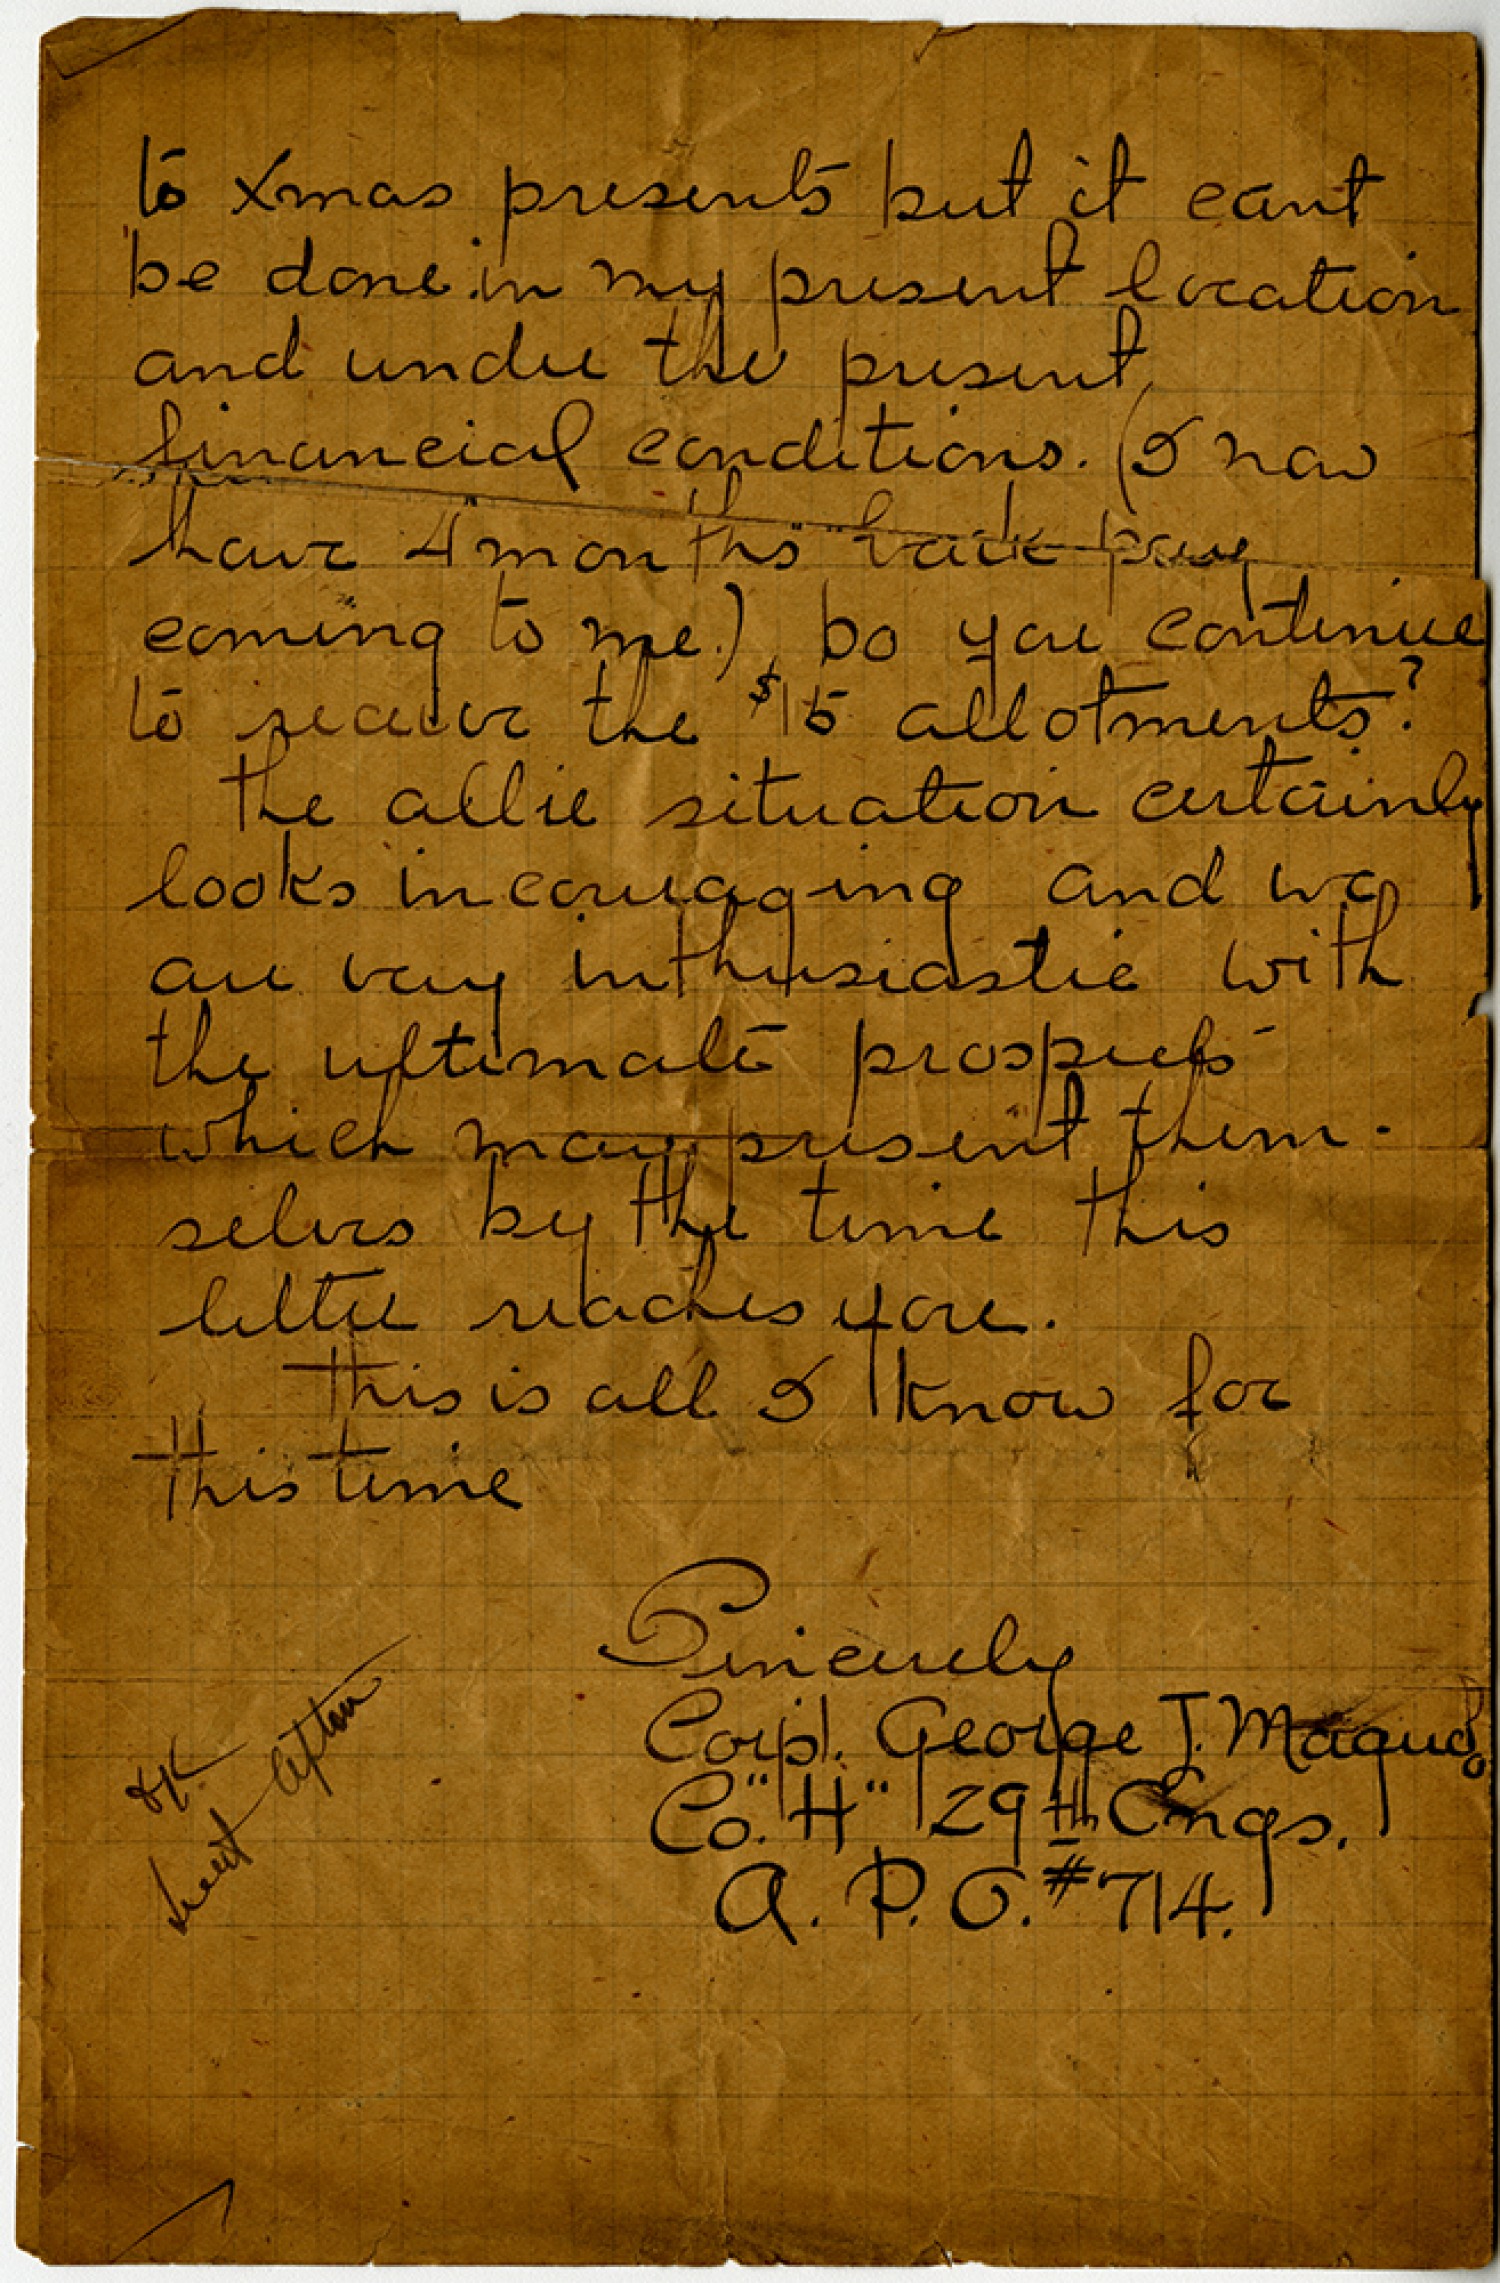 to Xmas presents but it cant
be done in my present location
and under the present
financial conditions. (I now
have 4 months" back pay
coming to me.) Do you continue
to receive the $15 allotments?
The allie situation certainly
looks incouraging and we
are very inthusiastic with
the ultimate prospects
which may present them-
selves by the time this
letter reaches you.
This is all I know for
this time
Sincerely
Corp'l. George T. Maqud
Co. "H" 29th Engs.
A. P. O. #714.
OK
Lieut Afton